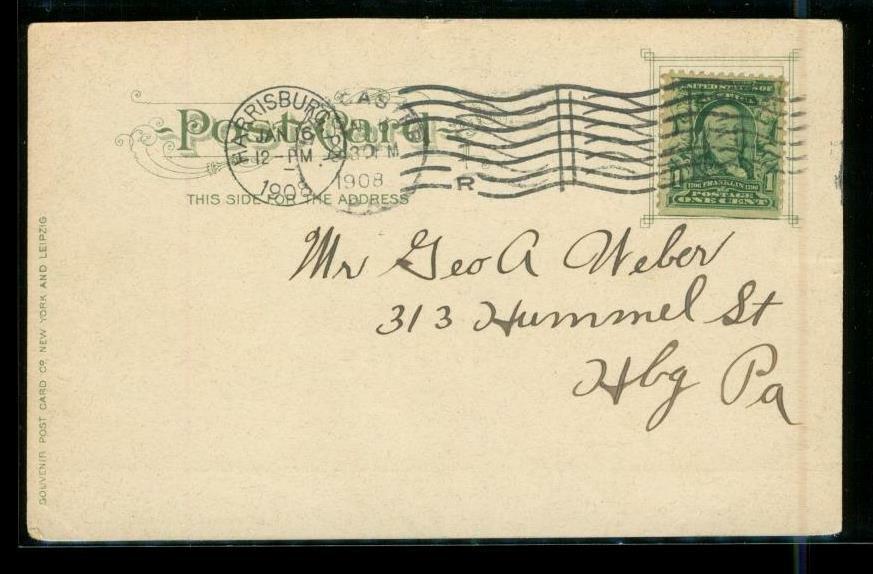 Post Card
THIS SIDE FOR THE ADDRESS
HARRISBURG
JAN 16
12-PM
1908
30PM
1908
R
UNITED STATES OF
1706 FRANKLIN 1790
1 1
POSTAGE
ONE CENT
Mr Geo A Weber
313 Hummel St
Hbg Pa
SOUVENIR POST CARD CO. NEW YORK AND LEIPZIG